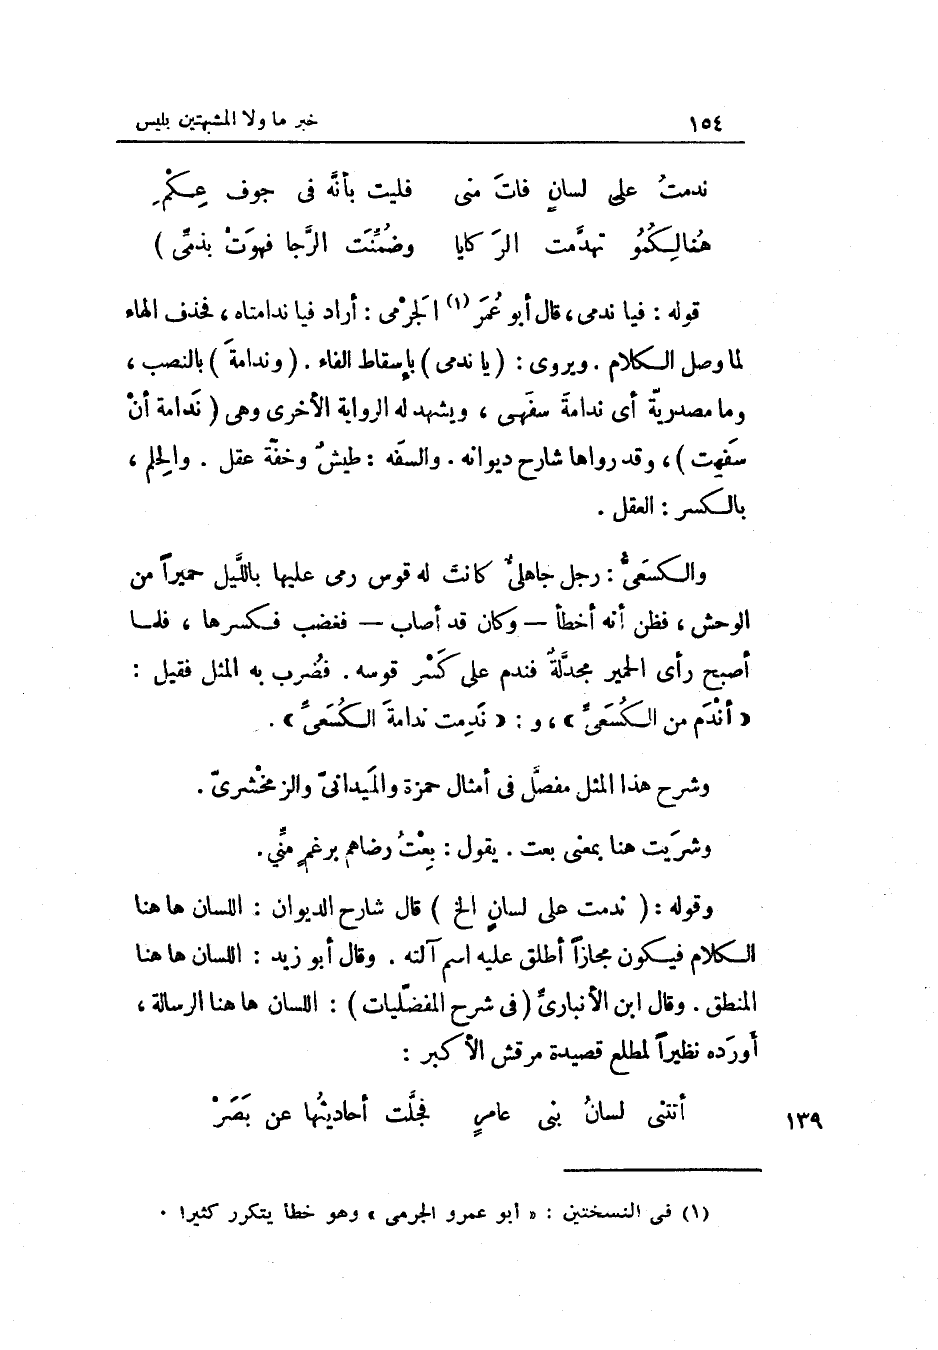 ١٥٤ خبر ما ولا المشبهتين بليس
ندمتُ على لسانٍ فاتَ منى فليت بأنَّه فى جوف عِكْمِ
هُنالِكُمُو تهدَّمت الرَكايا وضُمِّنَت الرَّجا فهوَتْ بذمِّى )
قوله : فيا ندمى، قال أبو عُمَر (١) الجَرْمى : أراد فيا ندامتاه ، فحذف الهاء
لما وصل الكلام . ويروى : ( يا ندمى ) بإسقاط الفاء . ( وندامةَ ) بالنصب ،
وما مصدريّة أى ندامةَ سفَهى ، ويشهد له الرواية الأخرى وهى ( نَدامة أنْ
سَفِهت ) ، وقد رواها شارح ديوانه . والسفَه : طيشٌ وخفّة عقل . والحِلم ،
بالكسر : العقل .
والكسَعىُّ : رجل جاهلىٌّ كانت له قوس رمى عليها باللَّيل حميراً من
الوحش ، فظن أنه أخطأ — وكان قد أصاب — فغضب فكسرها ، فلما
أصبح رأى الحمير مجدَّلةً فندم على كَسْر قوسه . فضُرب به المثل فقيل :
« أنْدَم من الكُسَعىِّ » ، و : « نَدِمت ندامةَ الكُسَعىِّ » .
وشرح هذا المثل مفصَّل فى أمثال حمزة والمَيدانىّ والزمخْشرىّ .
وشرَيت هنا بمعنى بعت . يقول : بِعْتُ رضاهم برغمٍ منِّي .
وقوله : ( ندمت على لسانٍ الخ ) قال شارح الديوان : اللسان ها هنا
الكلام فيكون مجازاً أطلق عليه اسم آلته . وقال أبو زيد : اللسان ها هنا
المنطق . وقال ابن الأنبارىِّ ( فى شرح المفضّليات ) : اللسان ها هنا الرسالة ،
أورَده نظيراً لمطلع قصيدة مرقش الأكبر :
أتتنى لسانُ بنى عامرٍ فجلَّت أحاديثُها عن بَصَرْ
١٣٩
(١) فى النسختين : « أبو عمرو الجرمى » وهو خطأ يتكرر كثيرا .